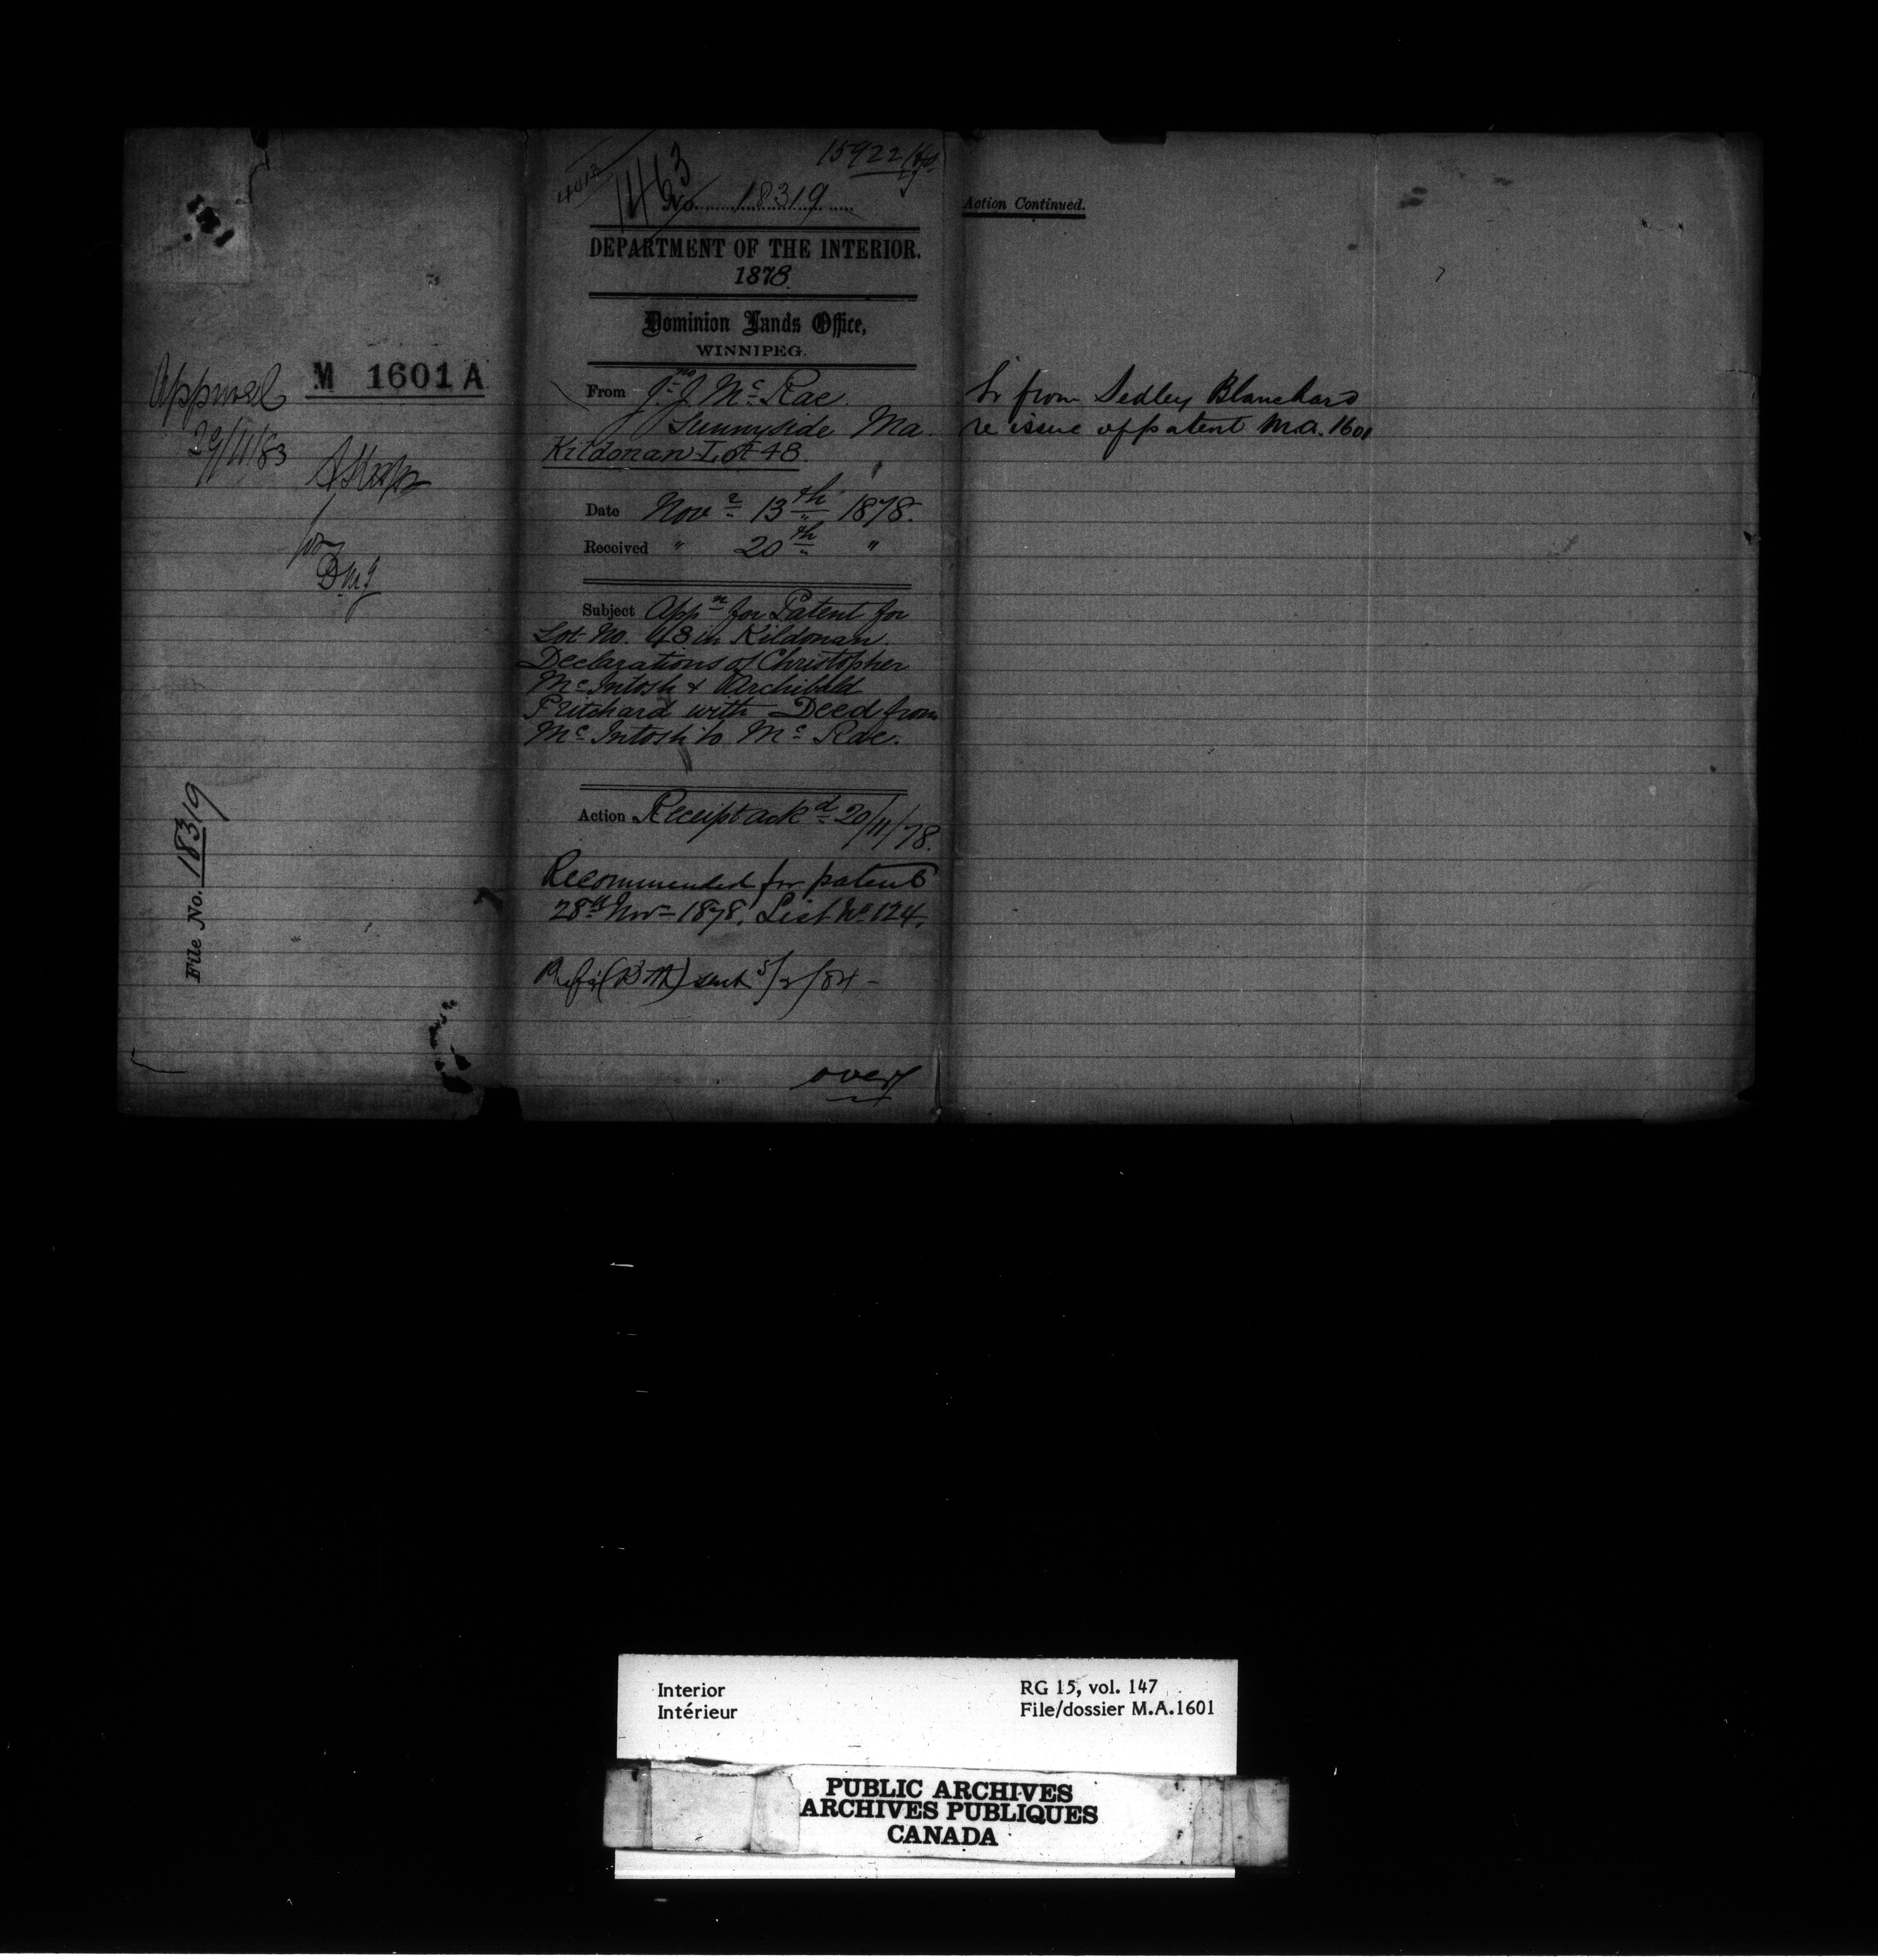 Approved
29/11/83
M 1601 A
for
D.M.I
File No. 18319
15922
1463
No. 18319
DEPARTMENT OF THE INTERIOR.
1878.
Dominion Lands Office,
WINNIPEG.
From Jno J. McRae.
Sunnyside Ma
Kildonan Lot 48.
Date Novr 13th 1878.
Received " 20th "
Subject Appn for Patent for
Lot No. 48 in Kildonan.
Declarations of Christopher
McIntosh & Archibald
Pritchard with Deed from
McIntosh to McRae.
Action Receipt ackd 20/11/78.
Recommended for patent
28th Nov 1878, List No 124.
sent 5/2/84 -
over
Action Continued.
Lr from Sedley Blanchard
re issue of patent M.A. 1601
Interior
Intérieur
RG 15, vol. 147
File/dossier M.A.1601
PUBLIC ARCHIVES
ARCHIVES PUBLIQUES
CANADA